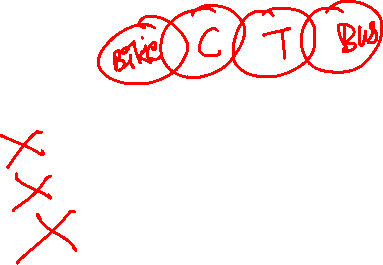 Bike C T Bus
X
X
X